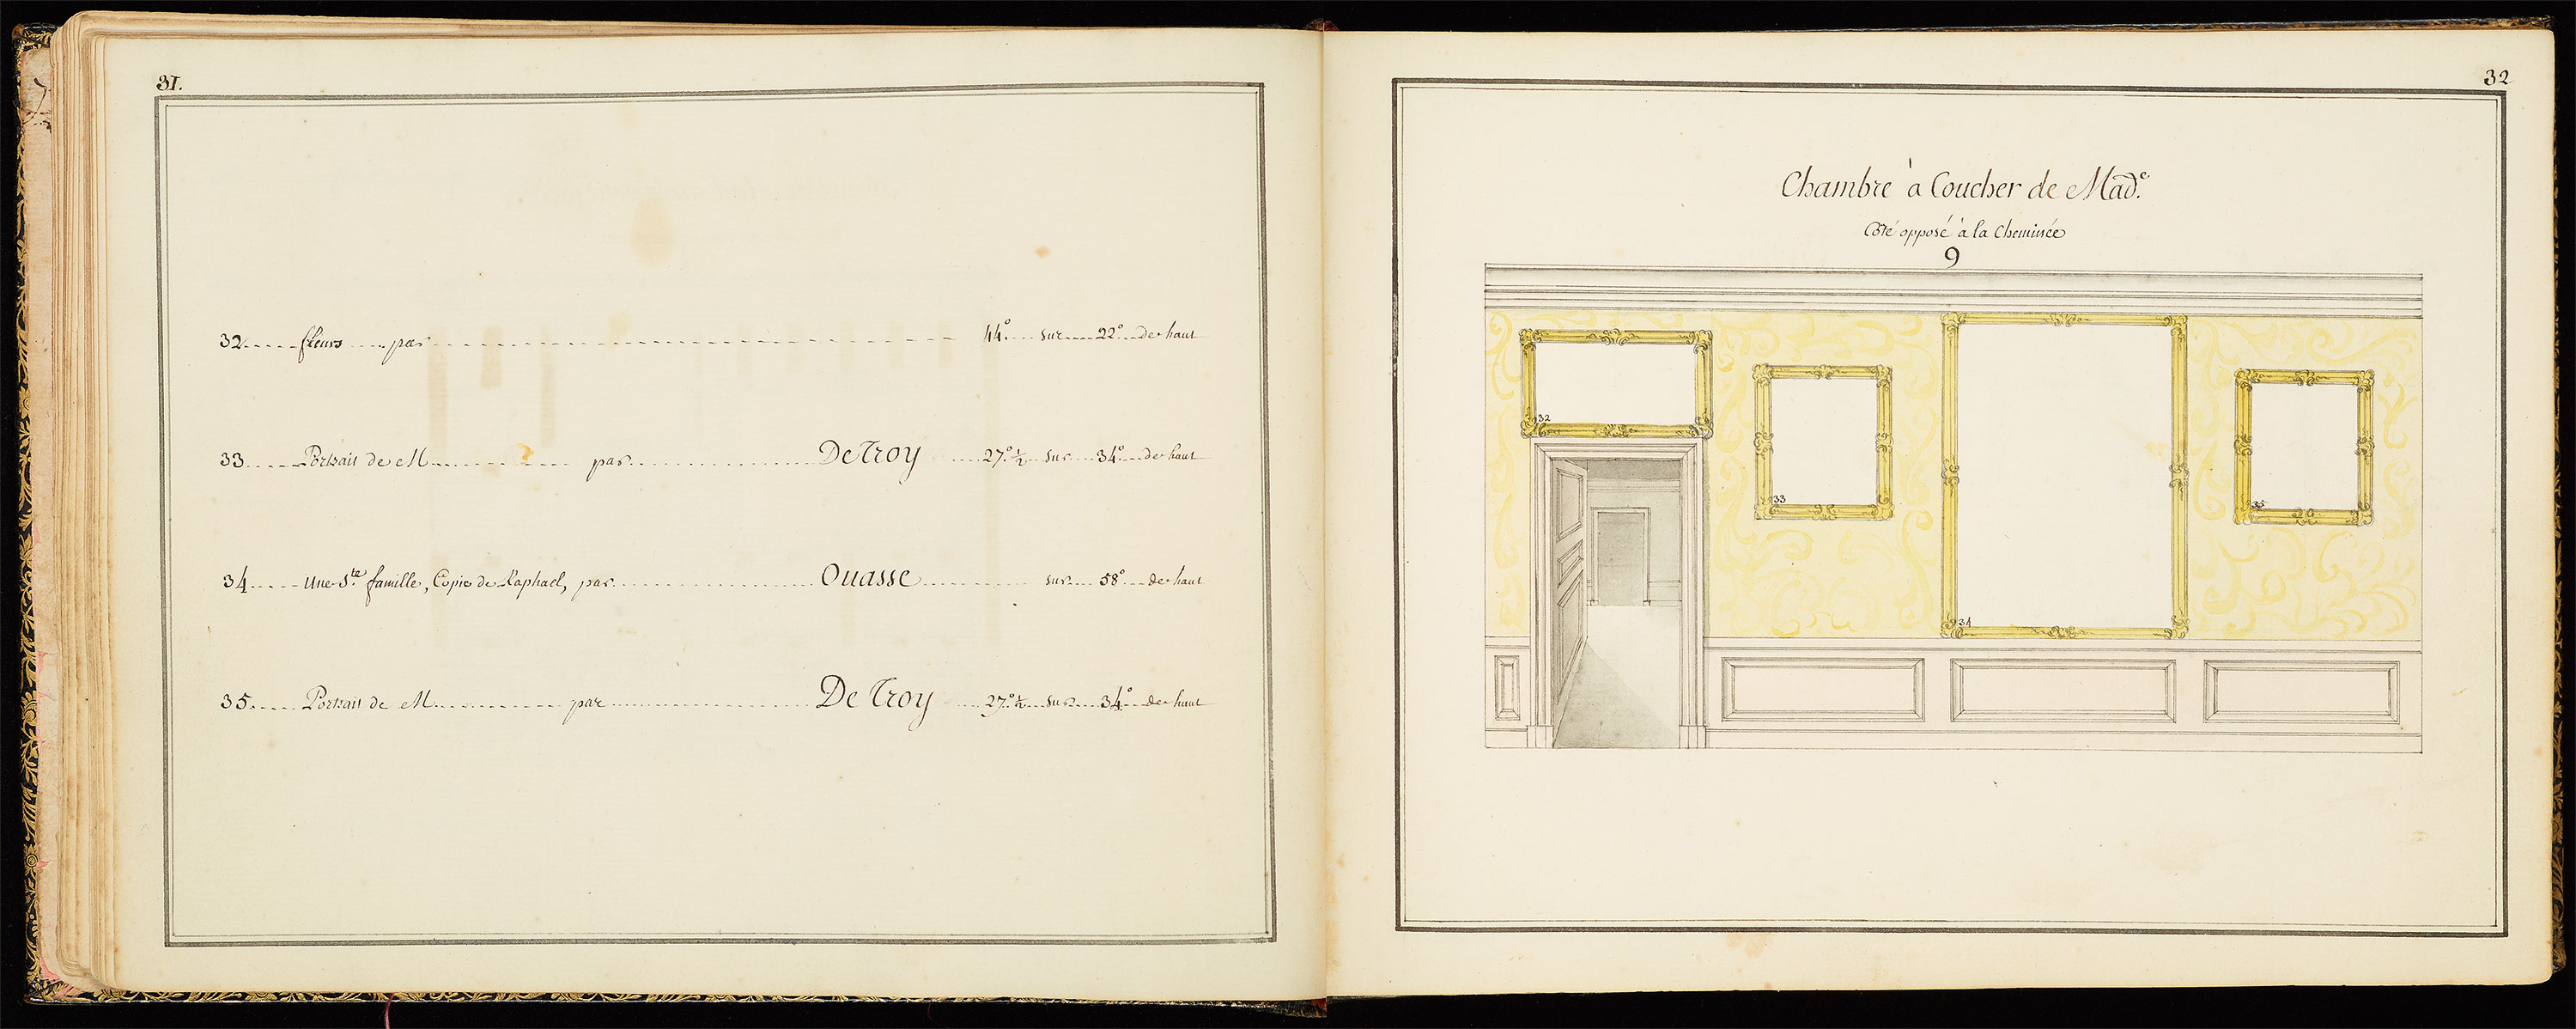 31.
32 fleurs par 44° sur 22° de haut
33 Portrait de M par De Troy 27° ½ sur 34° de haut
34 Une S.te famille, Copie de Raphael, par Ouasse sur 58° de haut
35 Portrait de M par De Troy 27° ½ sur 34° de haut
32
Chambre à Coucher de Mad.e
Côté opposé à la Cheminée
9
32
33
34
35